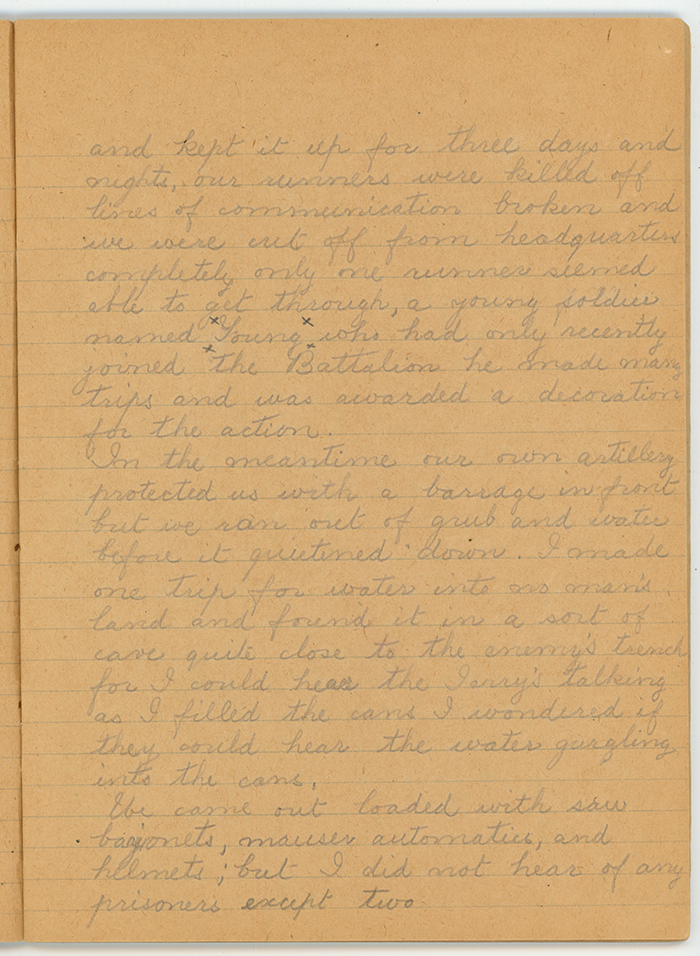 and kept it up for three days and
nights, our runners were killed off
lines of communication broken and
we were cut off from headquarters
completely only one runner seemed
able to get through, a young soldier
named Young who had only recently
joined the Battalion he made many
trips and was awarded a decoration
for the action.
In the meantime our own artillery
protected us with a barrage in front
but we ran out of grub and water
before it quietened down. I made
one trip for water into no man's
land and found it in a sort of
cave quite close to the enemy's trench
for I could hear the Jerry's talking
as I filled the cans I wondered if
they could hear the water gurgling
into the cans.
We came out loaded with saw
bayonets, mauser automatics, and
helmets; but I did not hear of any
prisoners except two